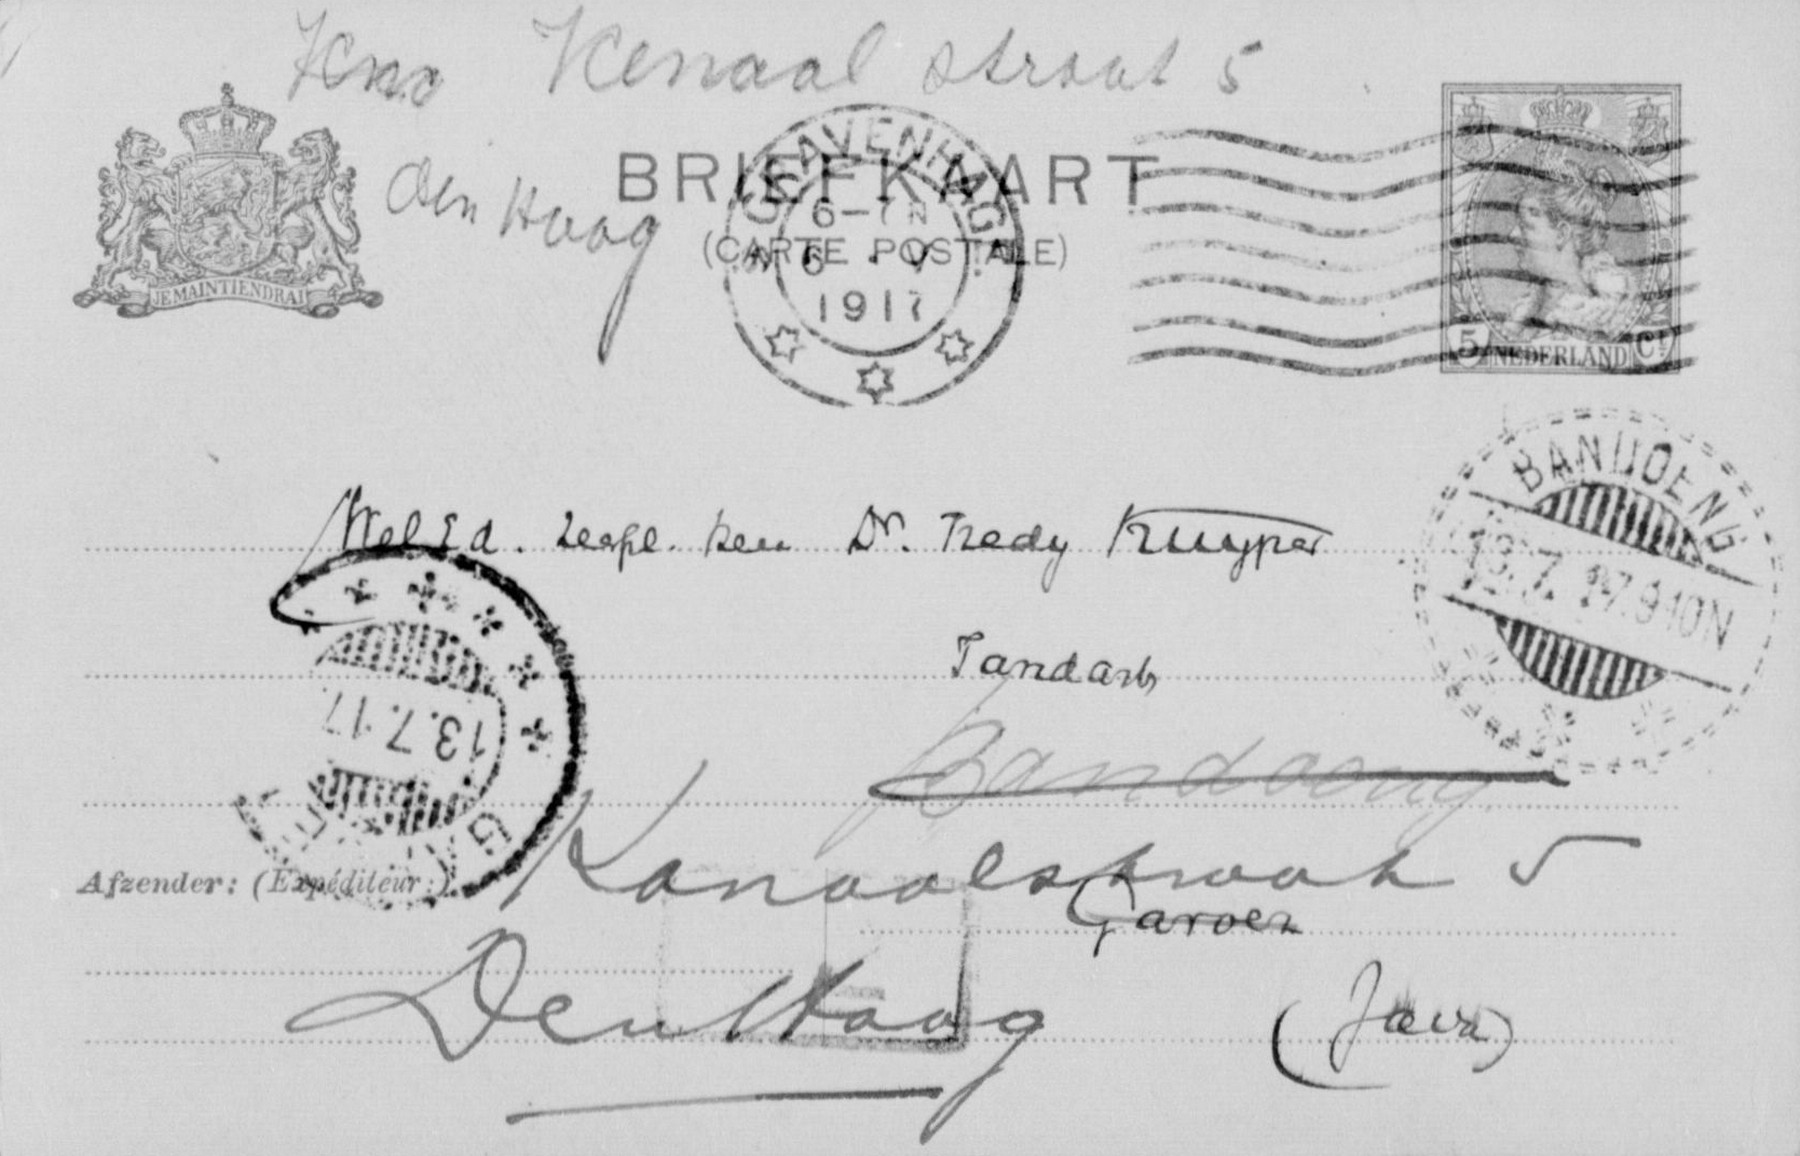 Kenaal straat 5
den Haag
JE MAINTIENDRAI
BRIEFKAART
(CARTE POSTALE)
'S GRAVENHAGE
6-7N
6 V
1917
5 NEDERLAND Ct
BANDOENG
13.7.17.9-10N
WelEd. Zeergel. Heer Dr. Tredy Kruyper
Tandarts
Bandoeng
13.7.17
Kanaalstraat 5
Afzender: (Expéditeur:)
Garoet
Den Haag
(Java)